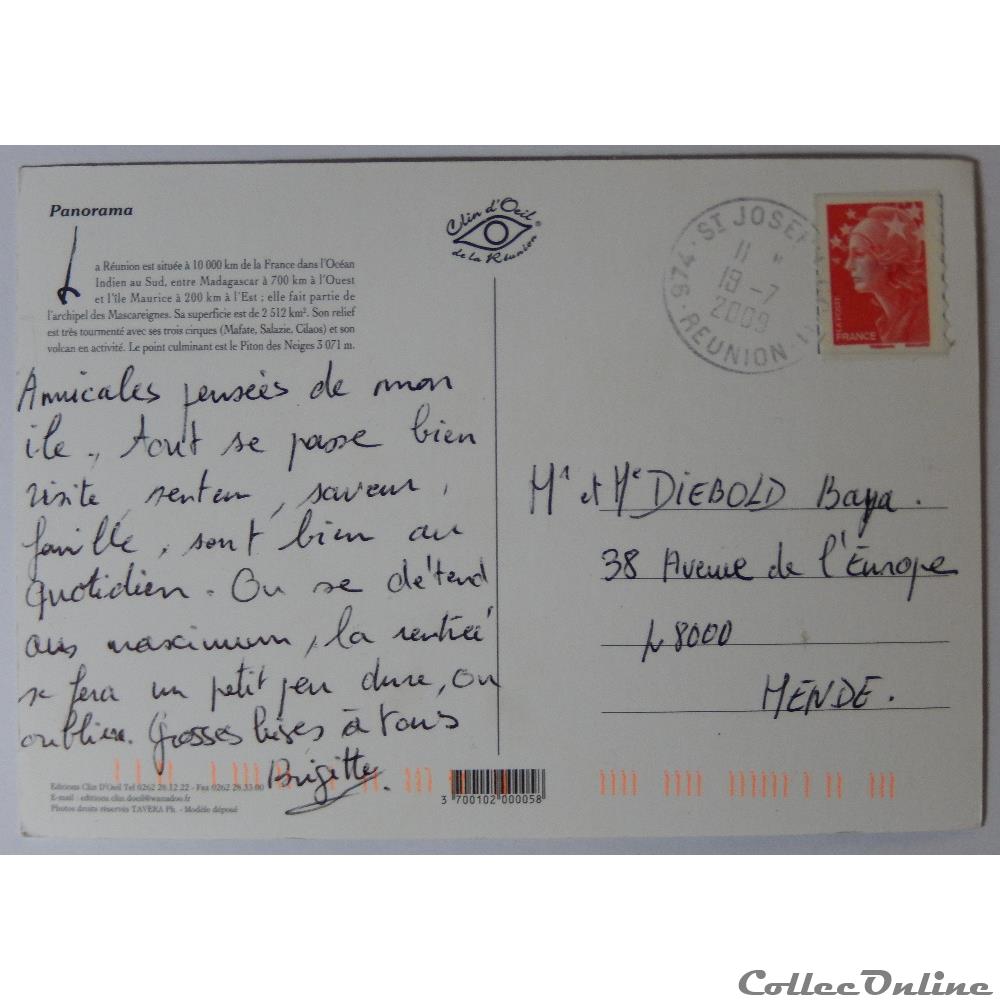 Panorama
La Réunion est située à 10 000 km de la France dans l'Océan
Indien au Sud, entre Madagascar à 700 km à l'Ouest
et l'île Maurice à 200 km à l'Est ; elle fait partie de
l'archipel des Mascareignes. Sa superficie est de 2 512 km². Son relief
est très tourmenté avec ses trois cirques (Mafate, Salazie, Cilaos) et son
volcan en activité. Le point culminant est le Piton des Neiges 3 071 m.
Amicales pensées de mon
ile., tout se passe bien
visite, senteur, saveur,
famille, sont bien au
quotidien. On se détend
aus maximum, la rentrée
se fera un petit peu dure, on
oubliera. Grosses bises à tous
Brigitte.
Editions Clin D'Oeil Tel 0262 26.12.22 - Fax 0262 26.33.00
E-mail : editions.clin.doeil@wanadoo.fr
Photos droits réservés TAVERA Ph. - Modèle déposé
Clin d'Oeil
de la Réunion
3 700102 000058
974 - ST JOSEPH
11 H
18 -7
2009
REUNION
LA POSTE
FRANCE
Mr et Me DIEBOLD Baya.
38 Avenue de l'Europe
48000
MENDE.
CollecOnline